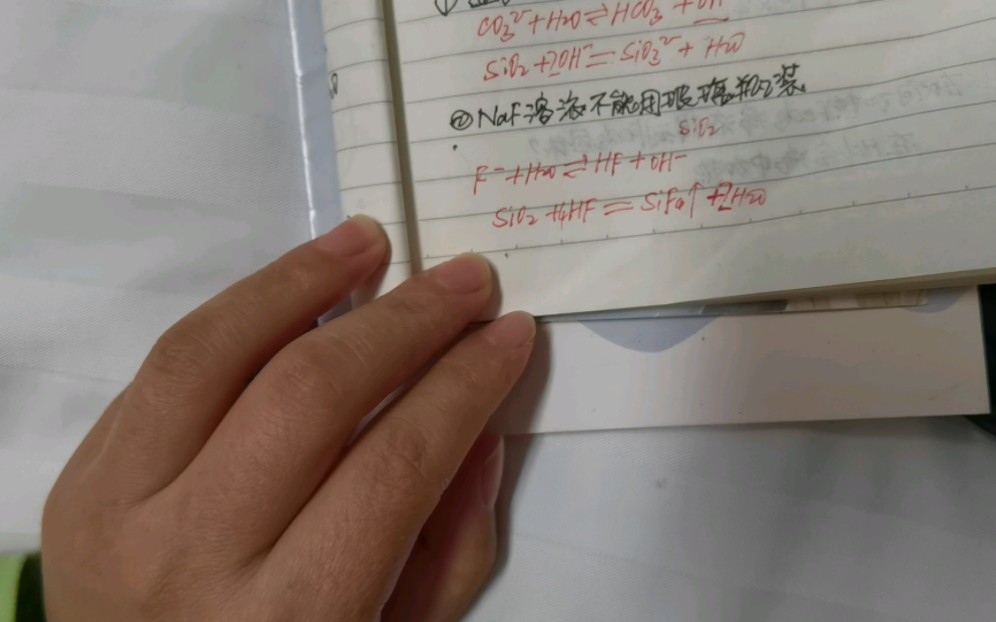 CO₃²⁻+H₂O⇌HCO₃⁻+OH⁻
SiO₂+2OH⁻=SiO₃²⁻+H₂O
②NaF溶液不能用玻璃瓶装
SiO₂
F⁻+H₂O⇌HF+OH⁻
SiO₂+4HF=SiF₄↑+2H₂O